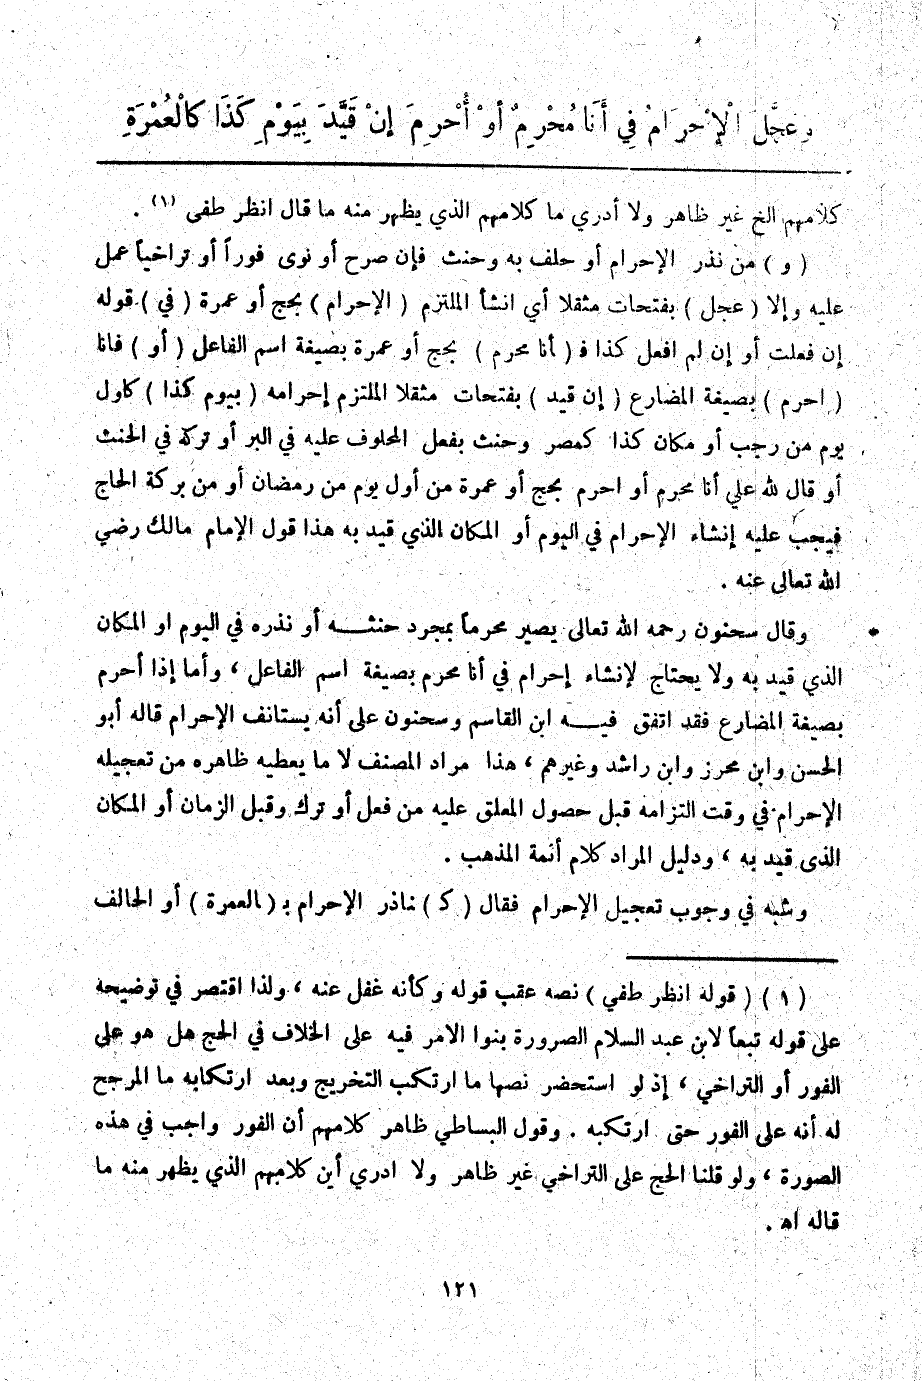 وعَجَّلَ الْإِحْرَامَ فِي أَنَا مُحْرِمٌ أَوْ أُحْرِمَ إِنْ قَيَّدَ بِيَوْمِ كَذَا كالْعُمْرَةِ
كلامهم الخ غير ظاهر ولا أدري ما كلامهم الذي يظهر منه ما قال انظر طفى (١) .
( و ) من نذر الإحرام أو حلف به وحنث فإن صرح أو نوى فوراً أو تراخياً عمل
عليه وإلا ( عجل ) بفتحات مثقلا أي انشأ الملتزم ( الإحرام ) بحج أو عمرة ( في ) قوله
إن فعلت أو إن لم افعل كذا فـ ( أنا محرم ) بحج أو عمرة بصيغة اسم الفاعل ( أو ) فانا
( احرم ) بصيغة المضارع ( إن قيد ) بفتحات مثقلا الملتزم إحرامه ( بيوم كذا ) كاول
يوم من رجب أو مكان كذا كمصر وحنث بفعل المحلوف عليه في البر أو تركه في الحنث
أو قال لله علي أنا محرم أو احرم بحج أو عمرة من أول يوم من رمضان أو من بركة الحاج
فيجب عليه إنشاء الإحرام في اليوم أو المكان الذي قيد به هذا قول الإمام مالك رضي
الله تعالى عنه .
وقال سحنون رحمه الله تعالى يصير محرماً بمجرد حنثـه أو نذره في اليوم او المكان
الذي قيد به ولا يحتاج لإنشاء إحرام في أنا محرم بصيغة اسم الفاعل ، وأما إذا أحرم
بصيغة المضارع فقد اتفق فيـه ابن القاسم وسحنون على أنه يستانف الإحرام قاله أبو
الحسن وابن محرز وابن راشد وغيرهم ، هذا مراد المصنف لا ما يعطيه ظاهره من تعجيله
الإحرام في وقت التزامه قبل حصول المعلق عليه من فعل أو ترك وقبل الزمان أو المكان
الذى قيد به ، ودليل المراد كلام أئمة المذهب .
وشبه في وجوب تعجيل الإحرام فقال ( كـ ) ناذر الإحرام بـ ( العمرة ) أو الحالف
( ١ ) ( قوله انظر طفي ) نصه عقب قوله وكأنه غفل عنه ، ولذا اقتصر في توضيحه
على قوله تبعاً لابن عبد السلام الصرورة بنوا الامر فيه على الخلاف في الحج هل هو على
الفور أو التراخي ، إذ لو استحضر نصها ما ارتكب التخريج وبعد ارتكابه ما المرجح
له أنه على الفور حتى ارتكبه . وقول البساطي ظاهر كلامهم أن الفور واجب في هذه
الصورة ، ولو قلنا الحج على التراخي غير ظاهر ولا ادري أين كلامهم الذي يظهر منه ما
قاله اه .
١٢١